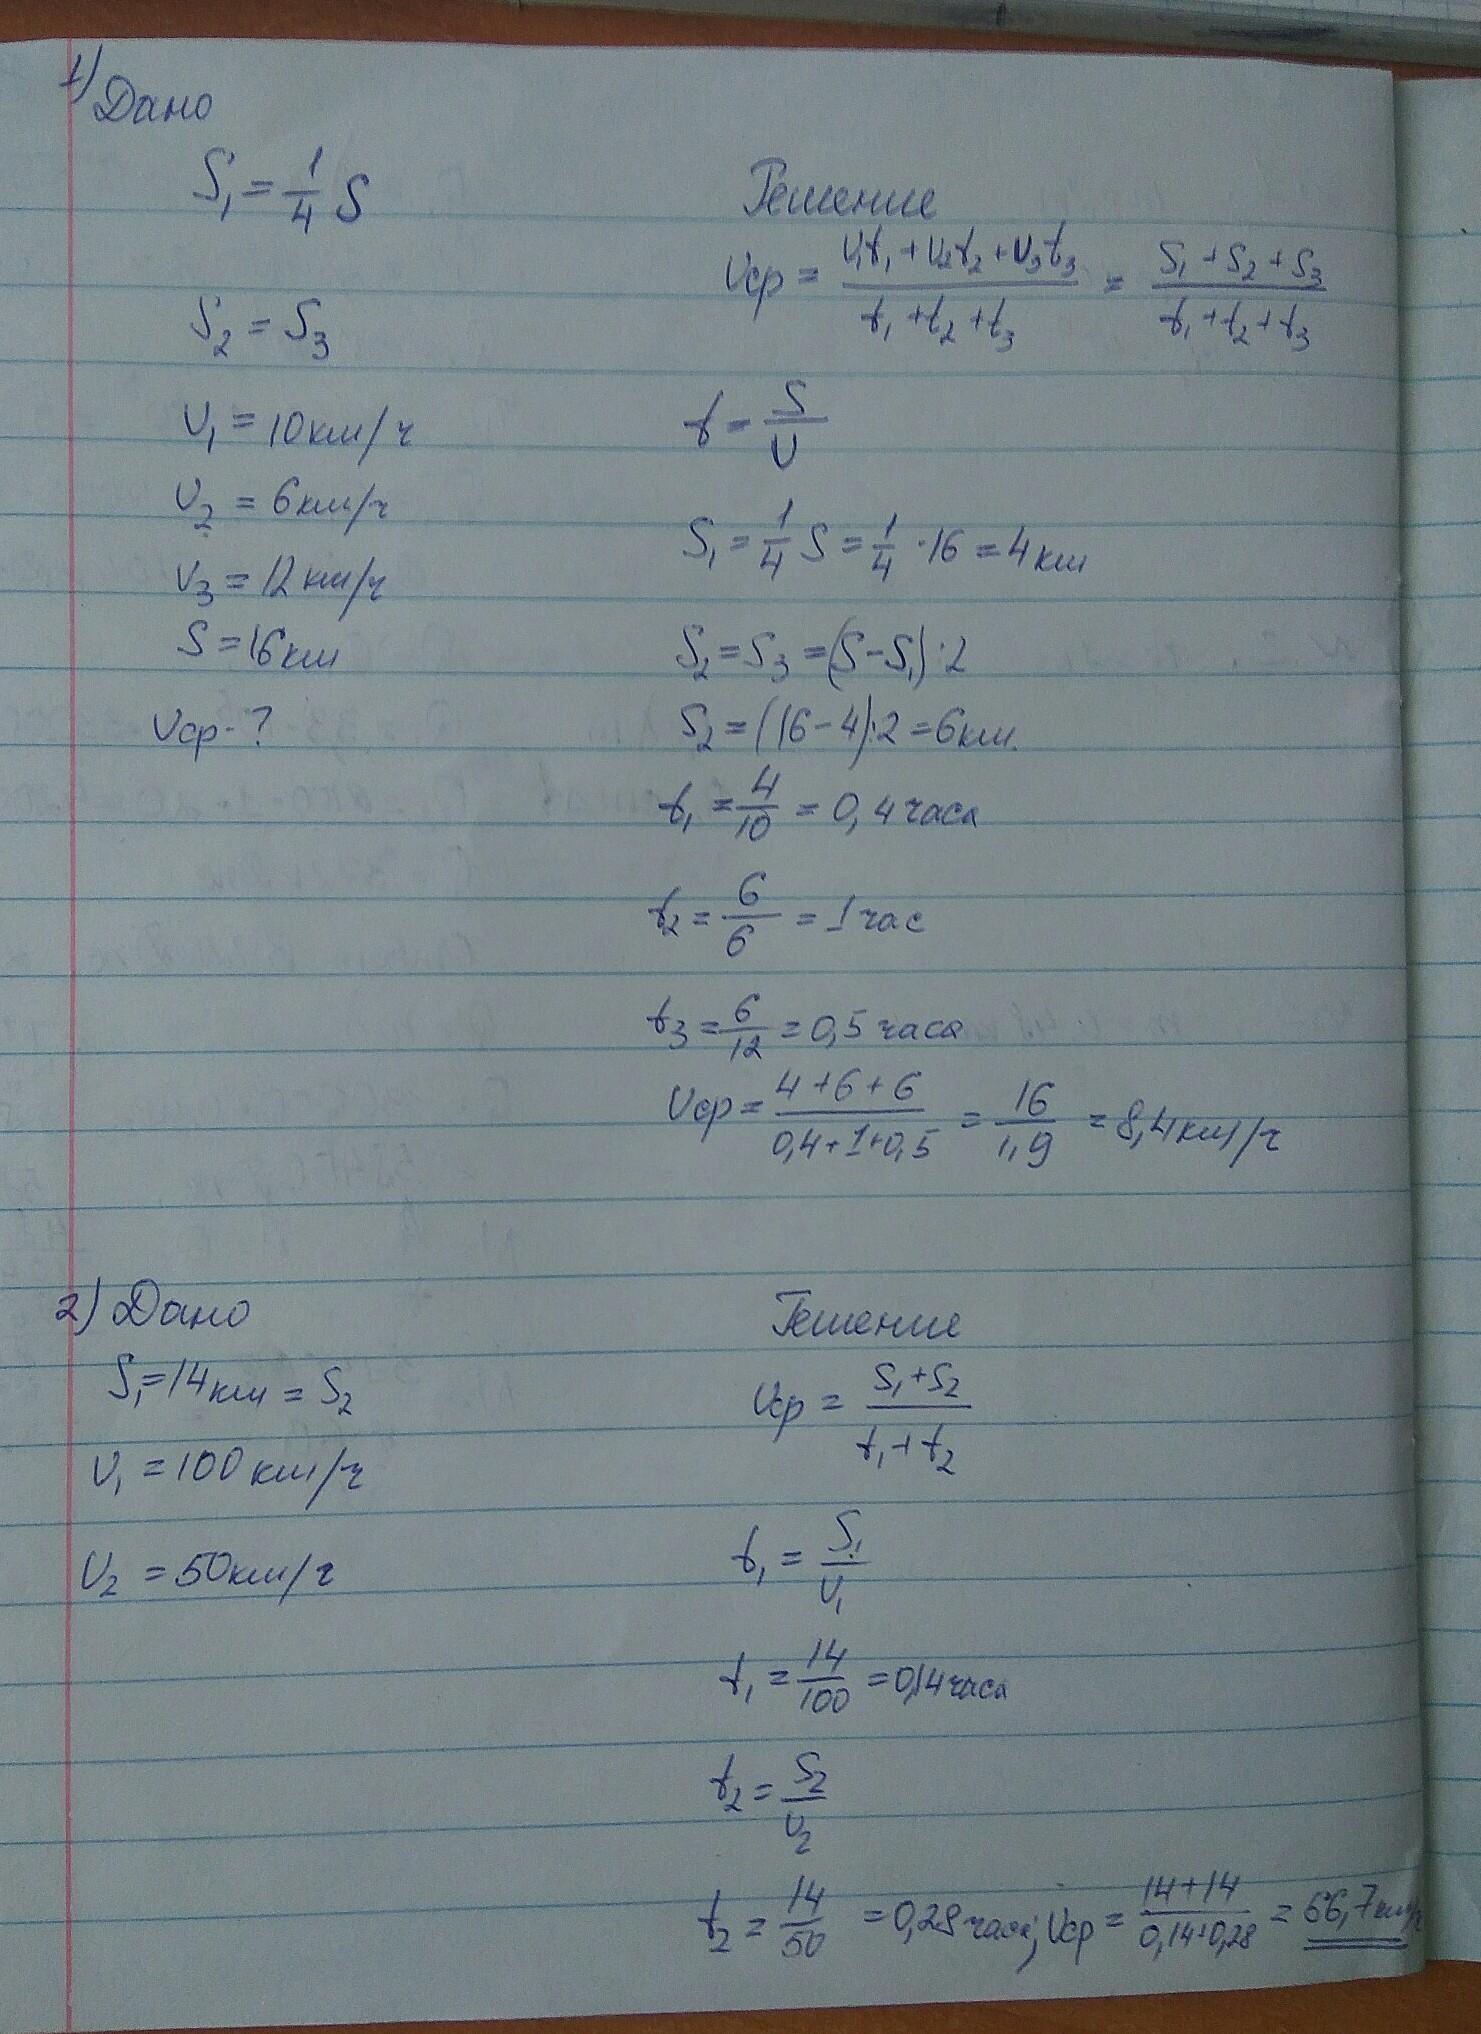 1) Дано
S₁ = 1/4 S
S₂ = S₃
υ₁ = 10 км/ч
υ₂ = 6 км/ч
υ₃ = 12 км/ч
S = 16 км
υср - ?
Решение
υср = (υ₁t₁ + υ₂t₂ + υ₃t₃)/(t₁ + t₂ + t₃) = (S₁ + S₂ + S₃)/(t₁ + t₂ + t₃)
t = S/υ
S₁ = 1/4 S = 1/4 · 16 = 4 км
S₂ = S₃ = (S - S₁) : 2
S₂ = (16 - 4) : 2 = 6 км.
t₁ = 4/10 = 0,4 часа
t₂ = 6/6 = 1 час
t₃ = 6/12 = 0,5 часа
υср = (4 + 6 + 6)/(0,4 + 1 + 0,5) = 16/1,9 = 8,4 км/ч
2) Дано
S₁ = 14 км = S₂
υ₁ = 100 км/ч
υ₂ = 50 км/ч
Решение
υср = (S₁ + S₂)/(t₁ + t₂)
t₁ = S₁/υ₁
t₁ = 14/100 = 0,14 часа
t₂ = S₂/υ₂
t₂ = 14/50 = 0,28 часа; υср = (14 + 14)/(0,14 + 0,28) = 66,7 км/ч